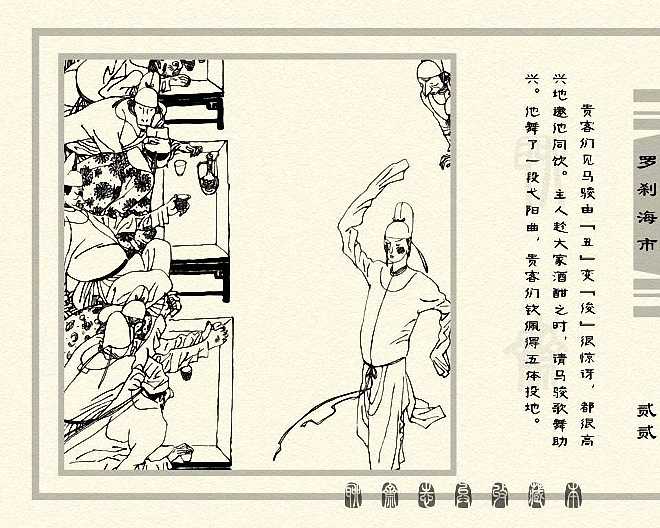 贵客们见马骏由「丑」变「俊」很惊讶，都很高
兴地邀他同饮。主人趁大家酒酣之时，请马骏歌舞助
兴。他舞了一段弋阳曲，贵客们钦佩得五体投地。
罗刹海市
贰贰
聊斋志异收藏本